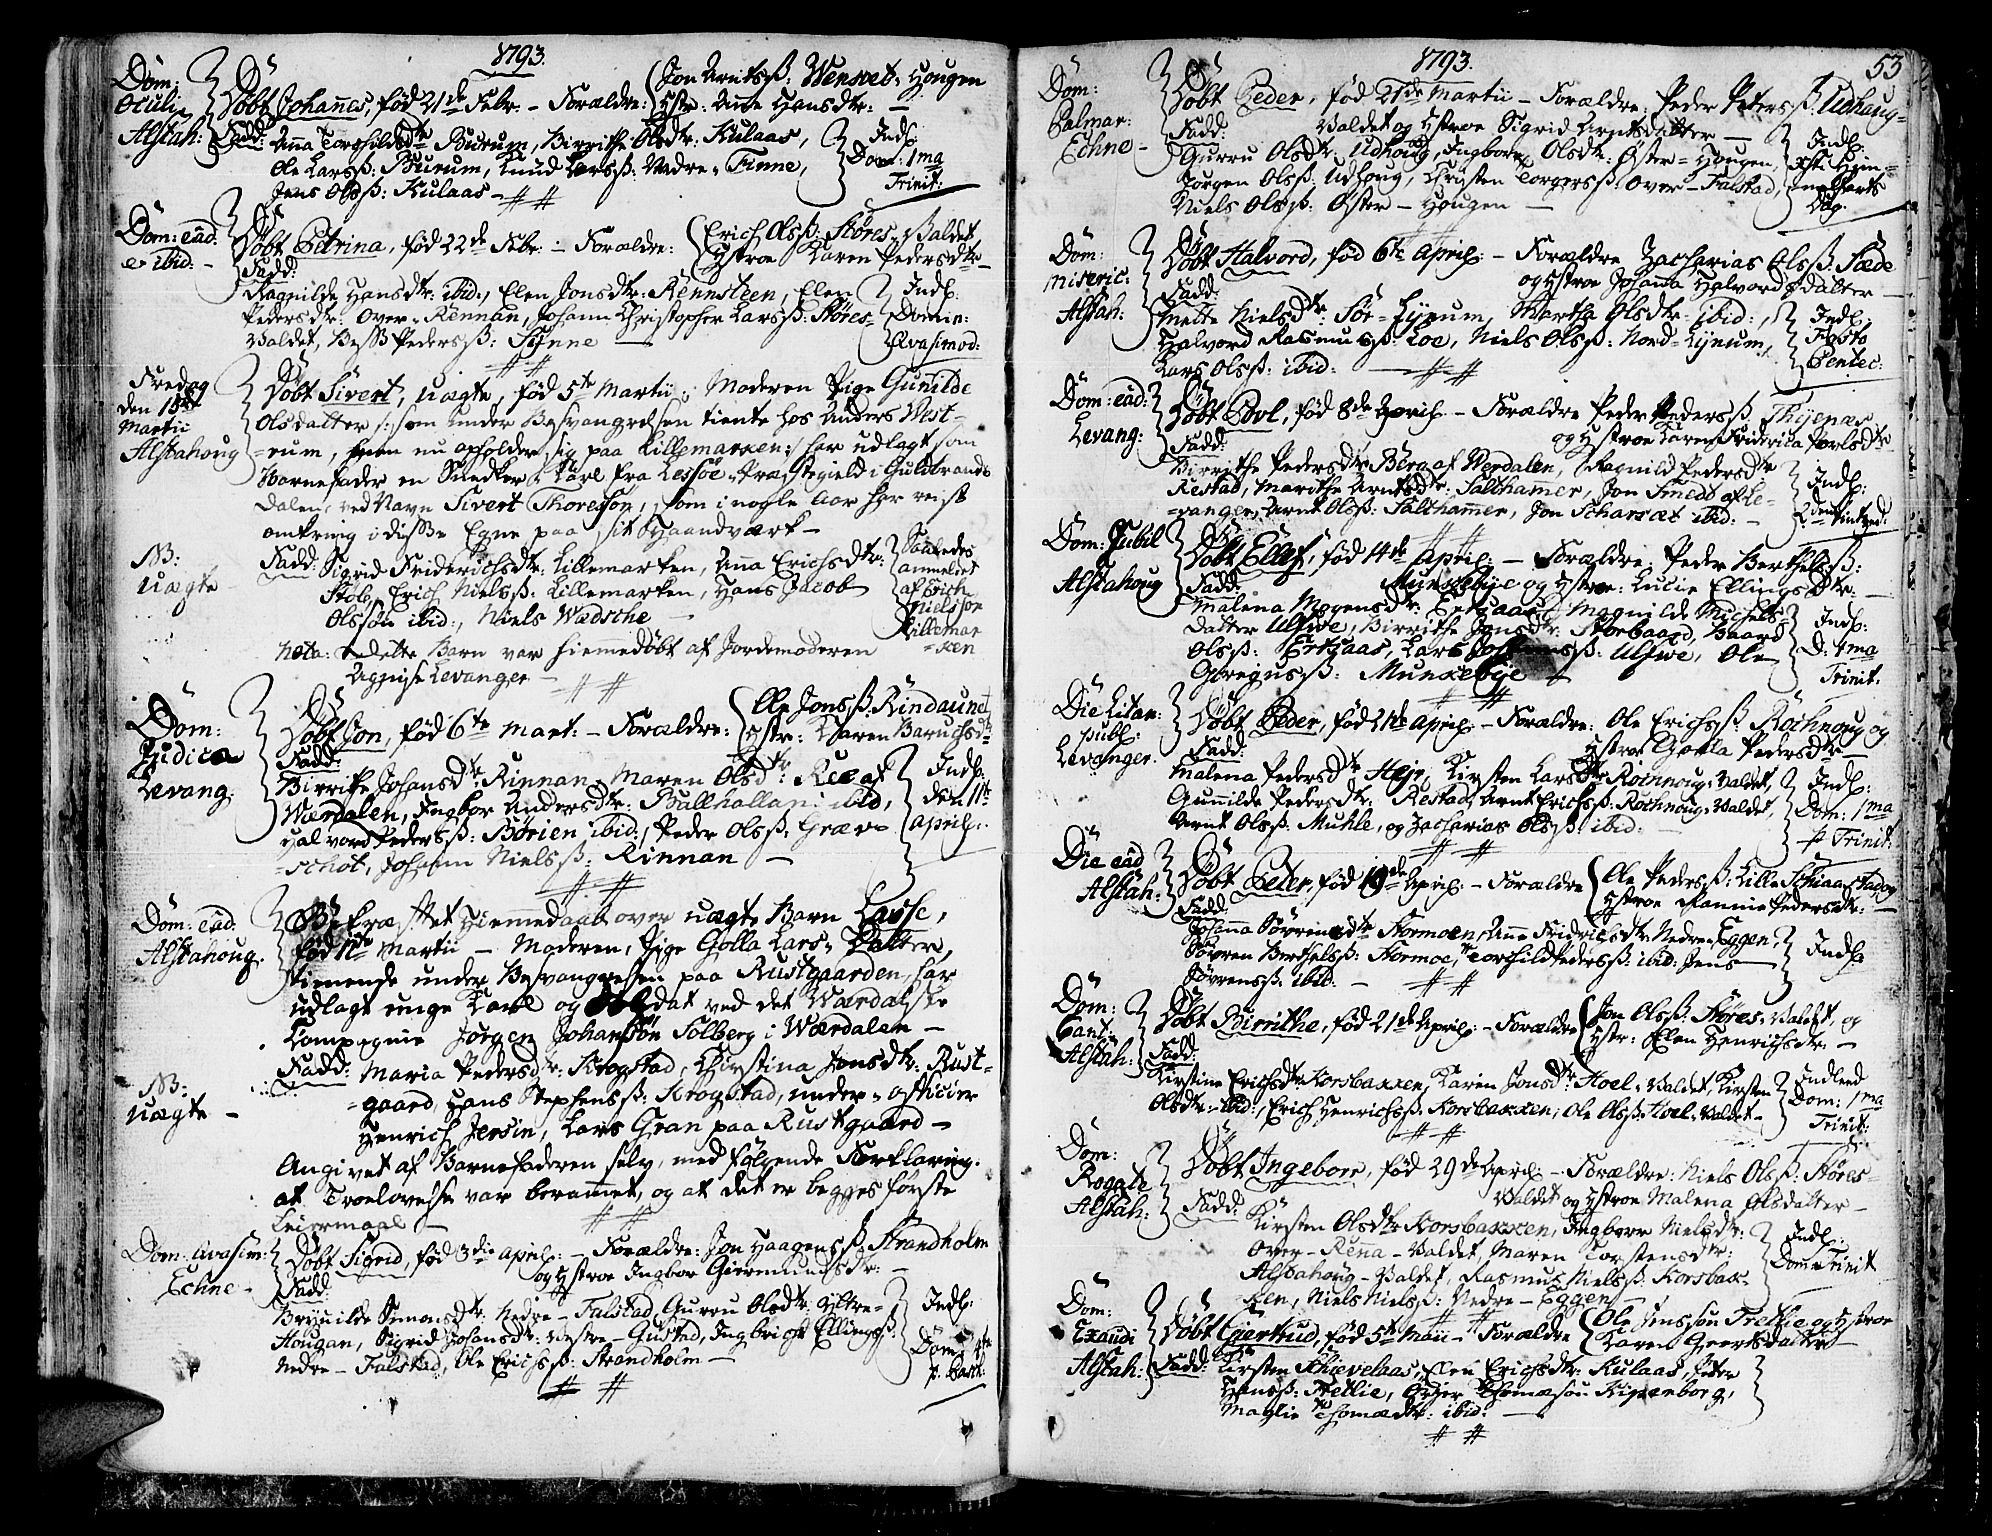 1793.
Dom: Oculi Alstah:
Døbt Johannes, fød 21de Febr: – Forældre: Jon Arntsß: Wensvet-Hougen
Hstr: Ane Hansdtr: –
Fadd: Anna Torchilsdtr Burum, Birrithe Olsdtr: Kulaas,
Ole Larsß: Burum, Knud Larsß: Nedre-Finne,
Jens Olsß: Kulaas –
Indl: Dom: 1ma Trinit:
Dom: eâd: e ibid: –
Døbt Petrina, fød 22de Febr: – Forældre: Erich Olsß: Støres-Valdet
Hstroe Karen Pedersdtr –
Fadd:
Ragnilde Hansdtr: ibid:, Elen Jonsdtr: Rennsteen, Elen
Pedersdtr: Over-Rennan, Johann Christopher Larsß: Støres-
Valdet, Pedersß: Tynne –
Indl: Domin: Qvasimod:
Fredag den 15de Martii Alstahoug
Døbt Sivert, uægte, fød 5te Martii; Moderen Pige Gunilde
Olsdatter, som under Besvangrelsen tiente hos Anders West-
=rum, men nu opholder sig paa Lillemarken; har udlagt som
Barnefader en Snedker Karl fra Lessøe-Præstegield i Guldbrands
Dalen, ved Navn Sivert Thoresson, som i nogle Aar har reist
omkring i disse Egne paa sit Haandværk –
NB: uægte
Fadd: Sigrid Friderichsdtr: Lillemarken, Anna Erichsdtr:
Stob, Erich Nielsß: Lillemarken, Hans Jacob
Olssøn ibid:, Niels Wædsche –
Saaledes anmeldet af Erich Nielssøn Lillemar=ken
Nota: dette Barn var hiemmedøbt af Jordemoderen
Agnise Levanger –
Dom: Judica Levang:
Døbt Jon, fød 6te Mart: – Forældre: Ole Jonsß: Rindaune
Hstr: Karen Baruchsdtr
Fadd:
Birrithe Johansdtr: Rinnan, Maren Olsdtr: Ree af
Wærdalen, Ingbor Andersdtr: Ballhallan ibid,
Halvord Pedersß: Børien ibid:, Peder Olsß: Græv-
=schot, Johann Nielsß: Rinnan –
Indl: den 11te April:
Dom: eâd: Alstahoug.
Bekræftet Hiemmedaab over uægte Barn Lasse,
fød 11te Martii – Moderen, Pige Golla Lars-Datter,
tienende under Besvangrelsen paa Rustgaarden, har
udlagt unge Karl og Soldat ved det Wærdalske
Compagnie Jørgen Johanssøn Solberg i Wærdalen –
NB: uægte –
Fadd: Maria Pedersdtr: Krogstad, Christina Jonsdtr: Rust-
=gaard, Hans Stephensß: Krogstad, under-officier
Henrich Jersin, Lars Gran paa Rustgaard –
Angivet af Barnefaderen selv, med følgende Forklaring:
at Troelovelse var berammet, og at det er begges første
Leiermaal –
Dom: Qvasim: Echne –
Døbt Sigrid, fød 3die April: – Forældre: Jon Haagensß: Strandholm
og Hstroe Ingbor Giermundsdtr: –
Fadd:
Brynilde Simonsdtr: Nedre-Falstad, Gurru Olsdtr: Yttre-
Hougan, Sigrid Johansdtr: Westre-Gustad, Ingbricht Ellingsß:
Nedre-Falstad, Ole Erichsß: Strandholm –
Indl: Dom: p. Pasch:
1793.
53
Dom: Palmar: Echne –
Døbt Peder, fød 21de Martii – Forældre: Peder Petersß: Udhaug-
Valdet og Hstroe Sigrid Arntsdatter –
Fadd:
Gurru Olsdtr: Udhoug, Ingbor Olsdtr: Øster-Hougen,
Jørgen Olsß: Udhoug, Christen Torgersß: Over-Falstad,
Niels Olsß: Øster-Hougen –
Indl: Xsti Him=melfarts Dag.
Dom: Miseric: Alstah:
Døbt Halvord, fød 6te April: – Forældre Zacharias Olsß: Sæde
og Hstroe Johanna Halvordsdatter –
Fadd:
Mette Nielsdtr: Sør-Lynum, Martha Olsdtr: ibid:,
Halvord Rasmusß: Loe, Niels Olsß: Nord-Lynum,
Lars Olsß: ibid: –
Indl: Festo Pentec:
Dom: eâd: Levang:
Døbt Povl, fød 8de April: – Forældre Peder Pedersß: Thijenæs
og Hstroe Karen Friderica Povlsdtr
Fadd:
Birrithe Pedersdtr: Berg af Werdalen, Ragnild Pedersdtr
Restad, Marithe Arntsdtr: Salthammer, Jon Smedd af Le-
=vanger, Arnt Olsß: Salthammer, Jon Scharsæt ibid: –
Indl: 2den Pintzed:
Dom: Jubil Alstahoug
Døbt Ellef, fød 14de April: – Forældre Peder Berthelsß:
Munkebye og Hstroe: Lucie Ellings Dtr: –
Fadd:
Malena Mogensdtr: Ertzaas, Magnilde Michels-
Datter Ulfwe, Birrithe Jonsdtr: Storbaard, Baard
Olsß: Ertzaas, Lars Ulfwe, Ole
Gregusß: Munkebye –
Indl: D: 4ma Trinit:
Die Litan: publ: Levanger.
Døbt Peder, fød 21de April: – Forældre: Ole Erichsß: Røchnoug og
Hstroe Golla Pedersdtr –
Fadd:
Malena Pedersdtr Heje, Kirsten Larsdtr Røchnoug-Valdet,
Gunnilde Pedersdtr: Restad, Arnt Erichsß: Røchnoug-Valdet,
Arnt Olsß: Muhle, og Zacharias Olsß: ibid: –
Indl: Dom: 1ma p Trinit:
Die eâd Alstah:
Døbt Peter, fød 19de April: – Forældre Ole Pedersß: Lille Schiaastad og
Hstroe Rannie Pedersdtr: –
Fadd:
Johanna Sørrensdtr Hormoen, Anne Fridrichsdtr: Nedre-Eggen,
Sørren Berthelsß: Hormoe, Torchild Pedersß: ibid: Jens
Sørrensß: ibid: –
Indl:
Dom: Cant: Alstah:
Døbt Birrithe, fød 21de April: – Forældre Jon Olsß: Støres-Valdet, og
Hstr: Elen Henrichsdtr: –
Fadd:
Kirstine Erichsdtr: Korsbakken, Karen Jonsdtr: Hoel-Valdet, Kirsten
Olsdtr: ibid:, Erich Henrichsß: Korsbakken, Ole Olsß: Hoel-Valdet –
Indleed Dom: 1ma Trinit:
Dom: Rogate Alstah:
Døbt Ingeborr, fød 29de April: – Forældre: Niels Olsß: Støres-
Valdet og Hstroe Malena Olsdatter –
Fadd: Kirsten Olsdtr Korsbakken, Ingborr Nielsdtr:
Over-Renna-Valdet, Maren Torstensdtr:
Alstahoug-Valdet, Rasmus Nielsß: Korsbak-
ken, Niels Nielsß: Nedre-Eggen –
Indl: Dom: Trinit
Dom: Exaudi Alstah:
Døbt Giertrud, fød 5te Maii – Forældre Ole Jenssøn Trettie og Hstroe
Karen Geertsdatter
Fadd: Kirsten Schievelaas, Elen Erichsdtr: Kulaas, Peter
Hansß: Trettie, Thomasøn Kipenborg,
Maglie Thomædtr: ibid: –